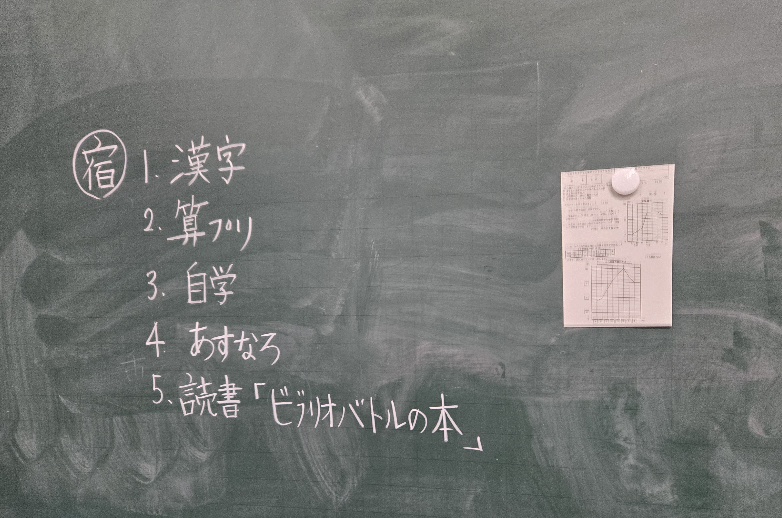 宿 1. 漢字
2. 算プリ
3. 自学
4 あすなろ
5. 読書「ビブリオバトルの本」